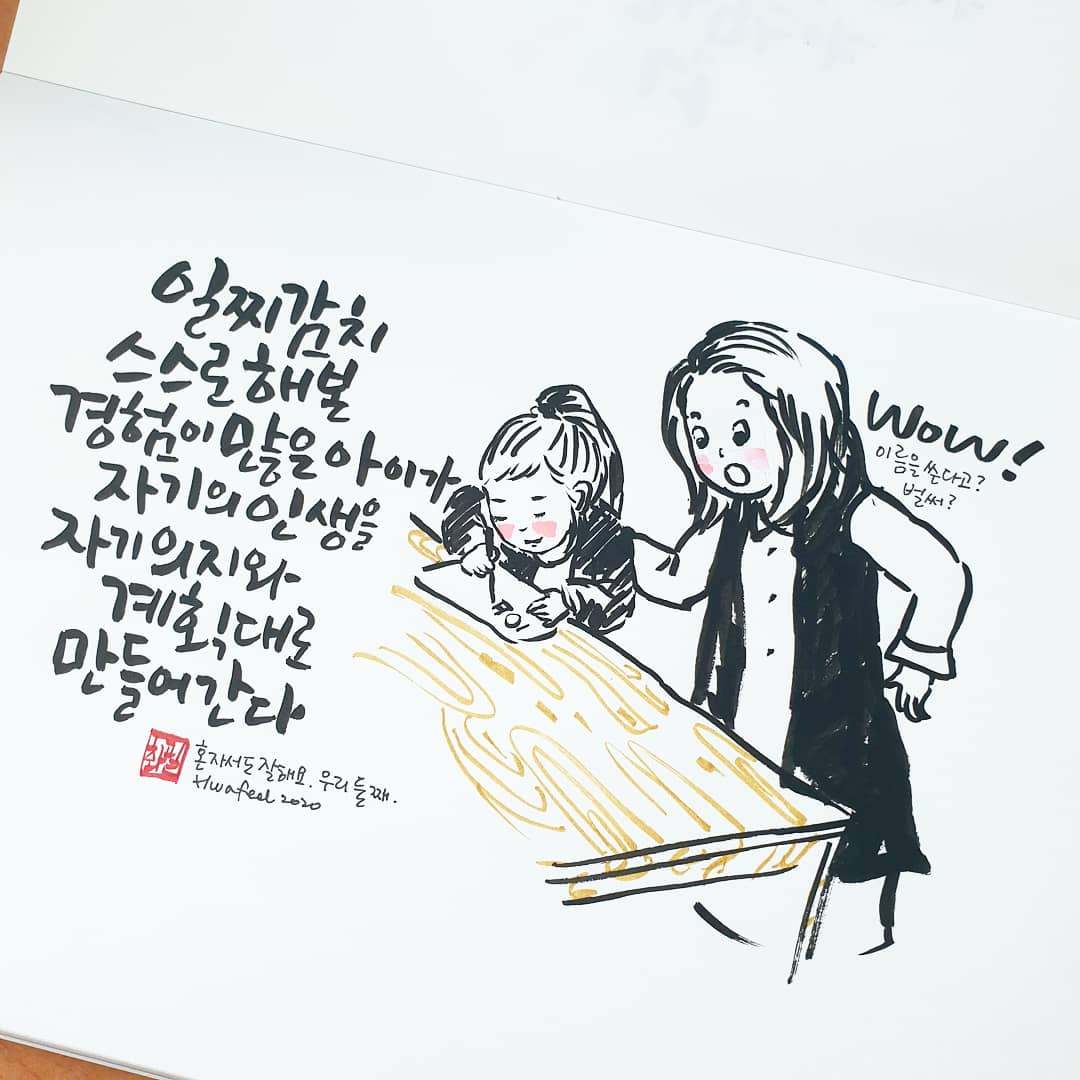 일찌감치
스스로 해본
경험이 많을 아이가
자기의 인생을
자기 의지와
계획대로
만들어간다
혼자서도 잘해요. 우리 둘째.
Hwafeel 2020
Wow!
이름을 쓴다고?
벌써?